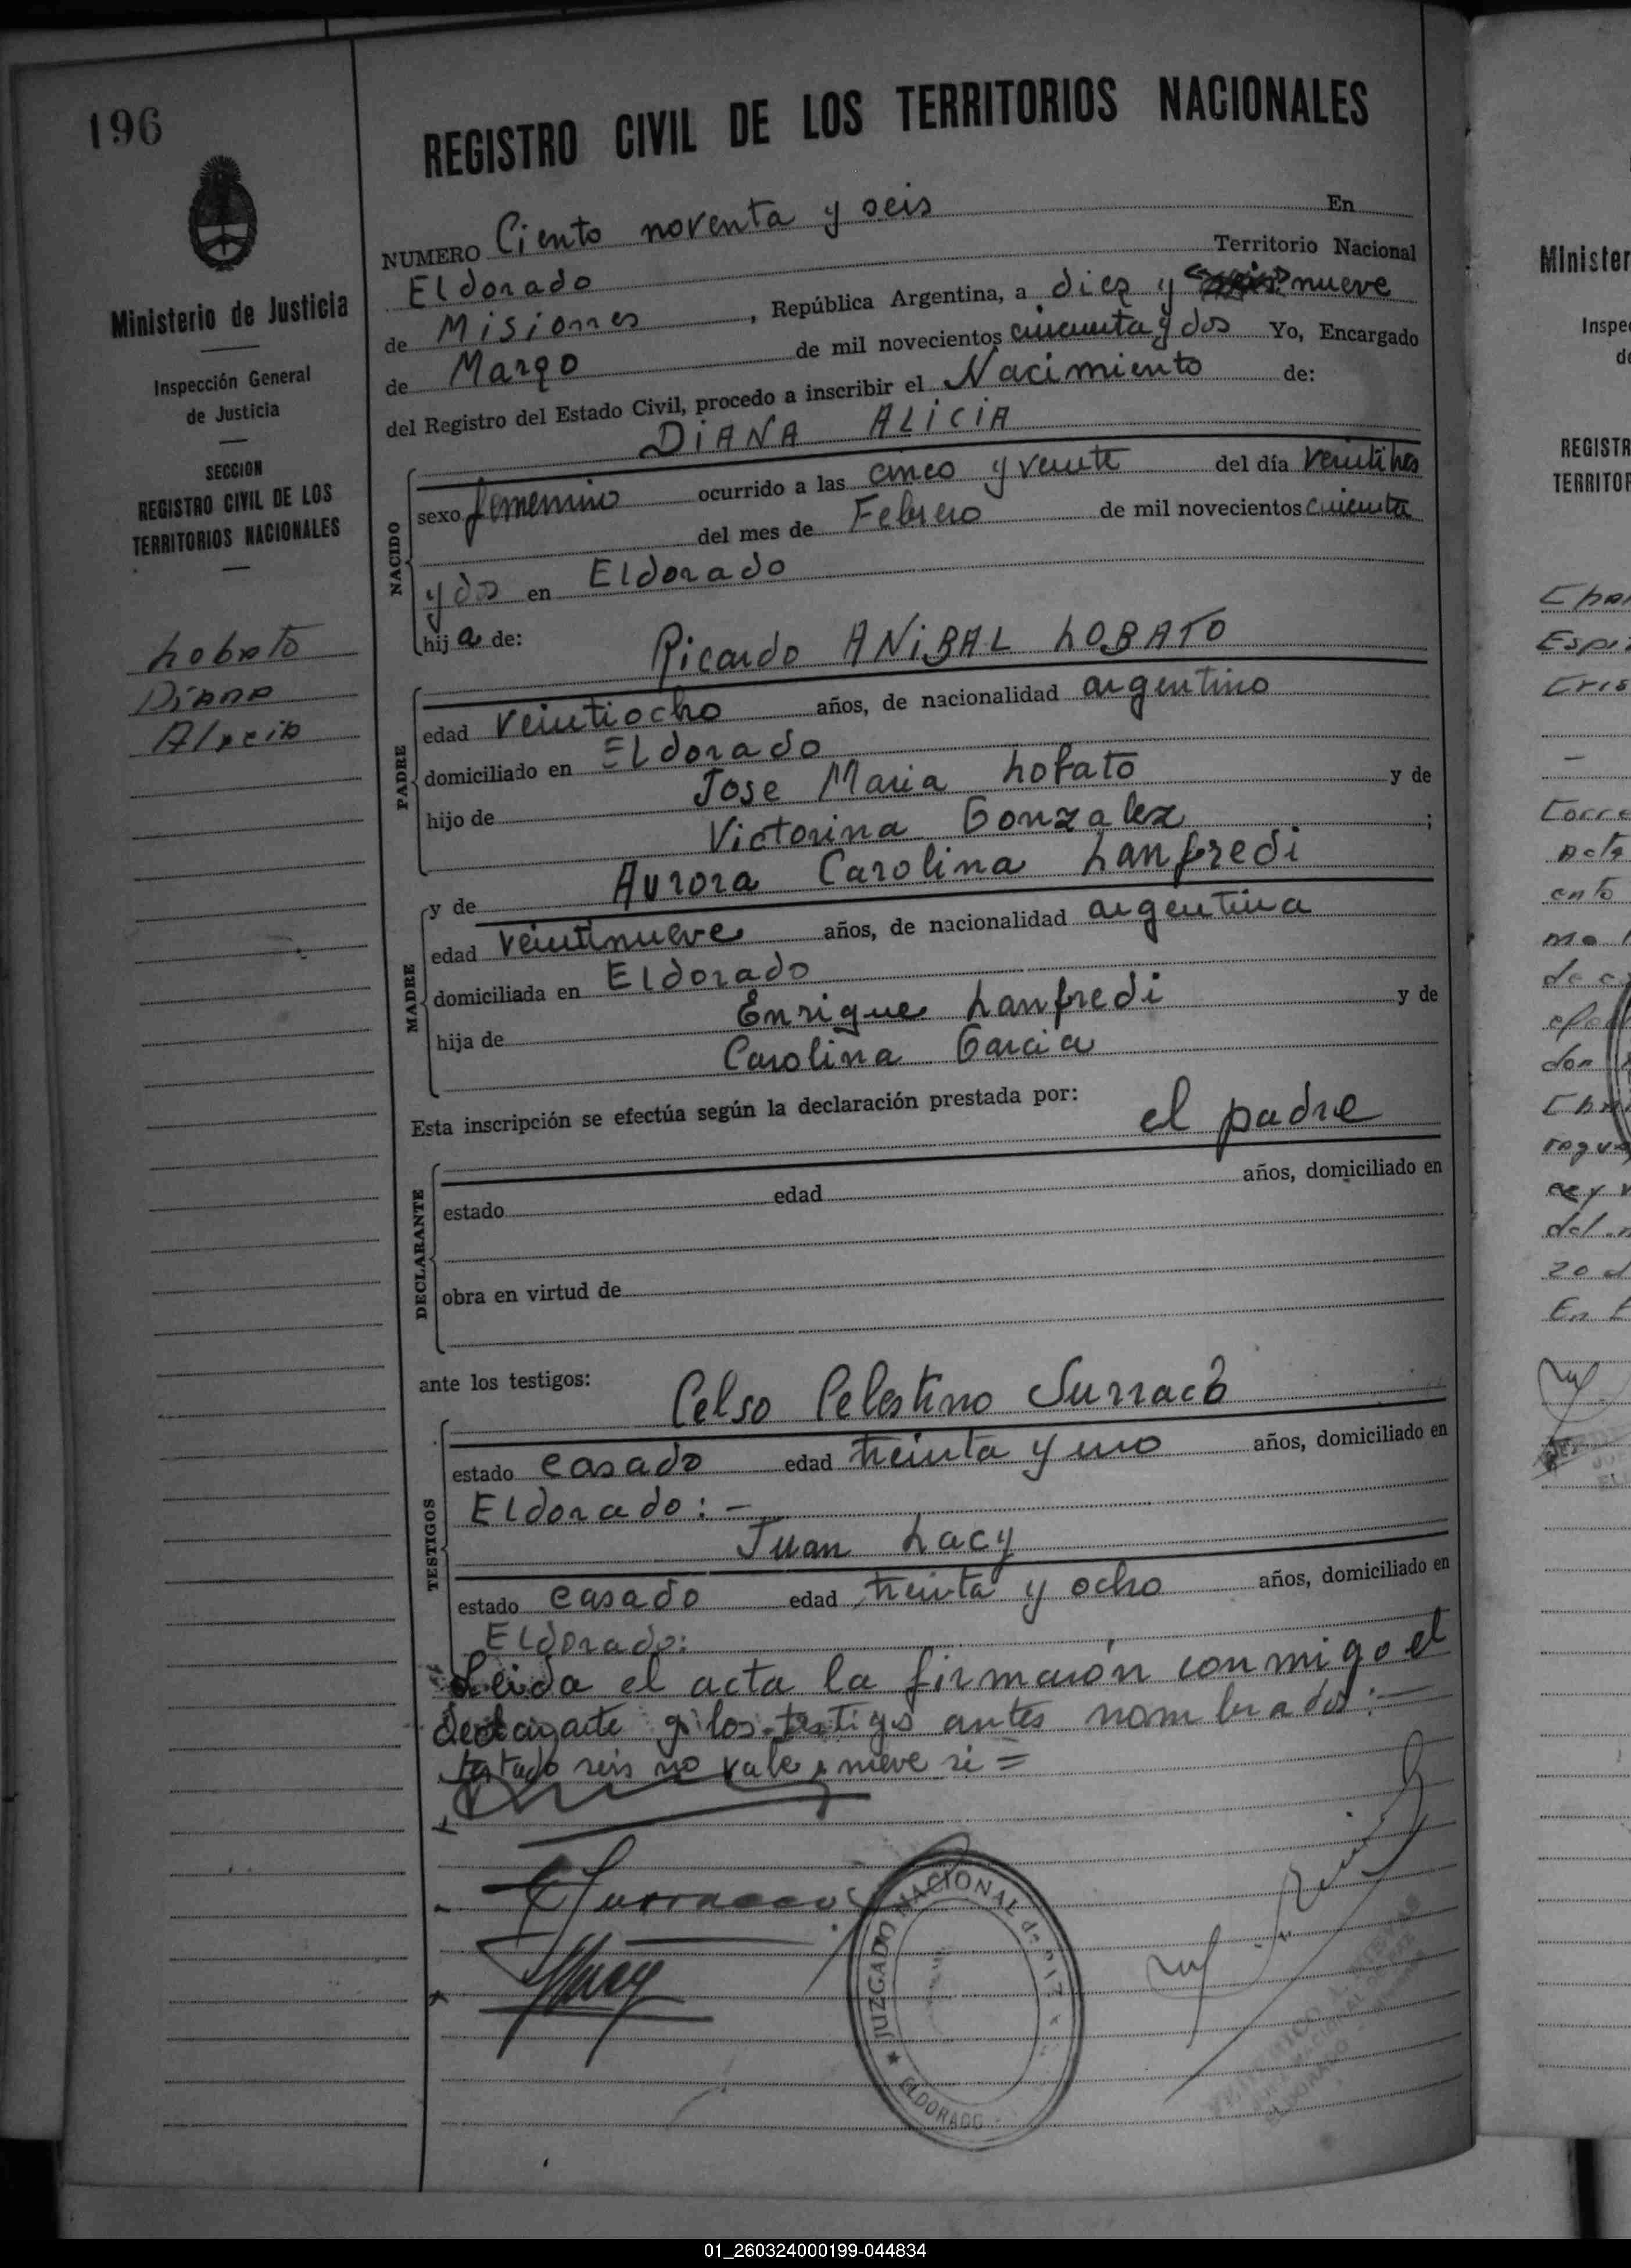 196
Ministerio de Justicia
Inspección General
de Justicia
SECCION
REGISTRO CIVIL DE LOS
TERRITORIOS NACIONALES
Lobato
Diana
Alicia
REGISTRO CIVIL DE LOS TERRITORIOS NACIONALES
NUMERO Ciento noventa y seis En
Eldorado Territorio Nacional
de Misiones, República Argentina, a diez y nueve
de Marzo de mil novecientos cincuenta y dos Yo, Encargado
del Registro del Estado Civil, procedo a inscribir el Nacimiento de:
DIANA ALICIA
NACIDO
sexo femenino ocurrido a las cinco y veinte del día veintitres
del mes de Febrero de mil novecientos cincuenta
y dos en Eldorado
hija de:
Ricardo ANIBAL LOBATO
PADRE
edad veintiocho años, de nacionalidad argentino
domiciliado en Eldorado
hijo de Jose Maria Lobato y de
Victorina Gonzalez ;
y de Aurora Carolina Lanfredi
MADRE
edad veintinueve años, de nacionalidad argentina
domiciliada en Eldorado
hija de Enrique Lanfredi y de
Carolina Garcia
Esta inscripción se efectúa según la declaración prestada por:
el padre
DECLARANTE
estado edad años, domiciliado en
obra en virtud de
ante los testigos:
Celso Celestino Surracó
TESTIGOS
estado casado edad treinta y uno años, domiciliado en
Eldorado:-
Juan Lacy
estado casado edad treinta y ocho años, domiciliado en
Eldorado:
Leida el acta la firmaron conmigo el
y los testigos antes nombrados:-
testado seis no vale, nueve si =
JUZGADO NACIONAL de PAZ
★ ELDORADO
Minister
Inspe
d
REGISTR
TERRITOR
01_260324000199-044834